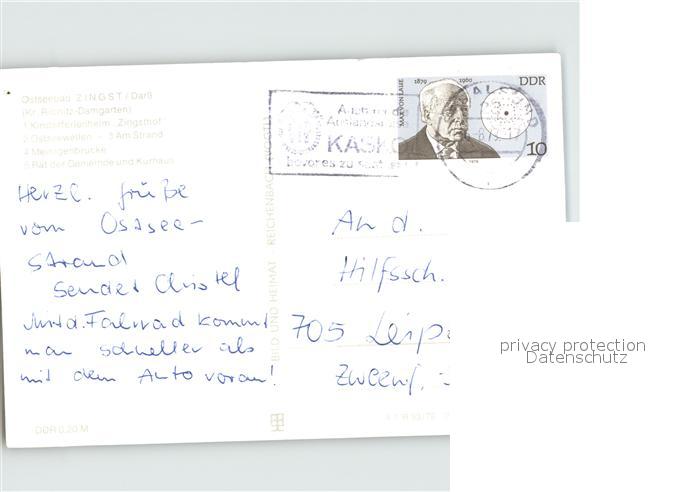 Ostseebad ZINGST/Darß
(Kr. Ribnitz-Damgarten)
1 Kinderferienheim „Zingsthof"
2 Ostseewellen - 3 Am Strand
4 Meiningenbrücke
5 Rat der Gemeinde und Kurhaus
KASKO
bevor es zu spät
MAX VON LAUE
1879 1960
DDR
10
1979
Herzl. Grüße
vom Ostsee-
strand
sendet Christel
Mit d. Fahrrad kommt
man schneller als
mit dem Auto voran!
BILD UND HEIMAT REICHENBACH (VOGTL)
An d.
Hilfssch.
705 Leip
DDR 0,20 M
privacy protection
Datenschutz